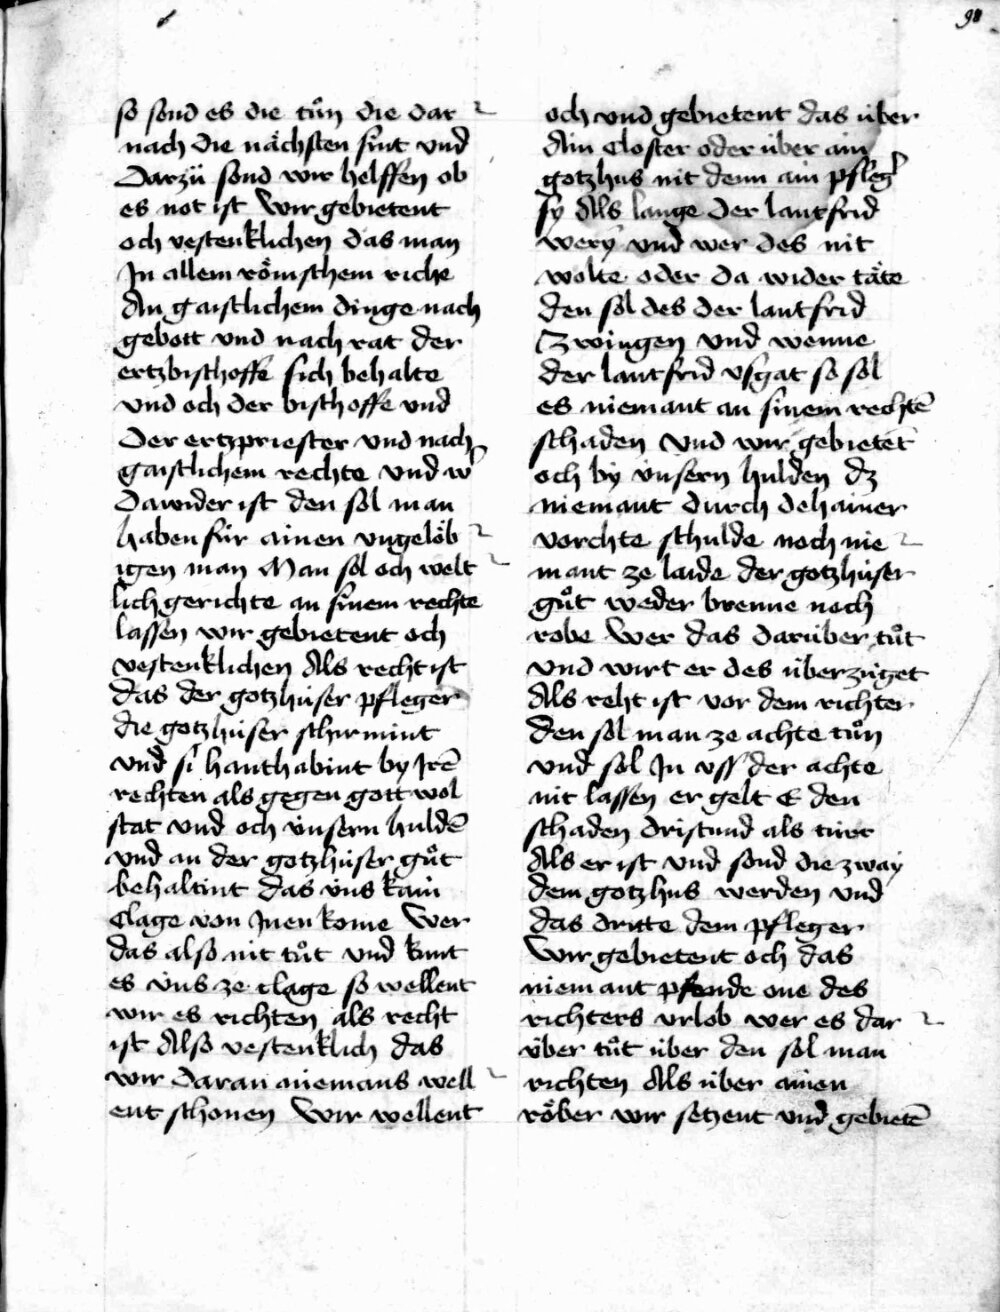 98
so sond es die tuͦn die dar
nach die naͤchsten sint vnd
Darzuͤ sond wir helffen ob
es not ist Wir gebietent
och vestenklichen das man
In allem roͤmischem riche
An gaistlichem dinge nach
gebott vnd nach rat der
ertzbischoffe sich behalte
vnd och der bischoffe vnd
Der ertzpriester vnd nach
gaistlichem rechte vnd wˀ
Dawider ist den sol man
haben für ainen vngeloͤb
igen man Man sol och welt
lich gerichte an sinem rechte
lassen wir gebietent och
vestenklichen Als recht ist
das der gotzhüser pfleger
die gotzhüser schirmint
vnd si hanthabint by Irē
rechten als gegen gott wol
stat vnd och vnsern huldē
vnd an der gotzhüser guͦt
behaltint das vns kain
Clage von Inen kome Wer
das also nit tuͦt vnd kunt
es vns ze clage so wellent
wir es richten als recht
ist Also vestenklich das
wir daran niemans well
ent schonen Wir wellent
och vnd gebietent das über
Ain Closter oder über ain
gotzhus nit denn ain pflegˀ
sy Als lange der lantfrid
wery vnd wer des nit
wolte oder da wider taͤte
den sol des der lantfrid
Zwingen vnd wenne
der lantfrid vsgat so sol
es niemant an sinem rechtē
schaden vnd wir gebietēt
och by vnsern hulden dz
niemant durch dehainer
vorchte schulde noch nie
mant ze laide der gotzhüser
guͦt weder brenne noch
robe Wer das darüber tuͦt
vnd wirt er des überzüget
Als reht ist vor dem richter
den sol man ze achte tuͦn
vnd sol In vss der achte
nit lassen er gelt E den
schaden dristund als türe
Als er ist vnd sond die zway
dem gotzhus werden vnd
das dritte dem pfleger
Wir gebietent och das
niemant pfende one des
richters vrlob wer es dar
über tuͦt über den sol man
richten Als über ainen
roͤber wir setzent vnd gebietē